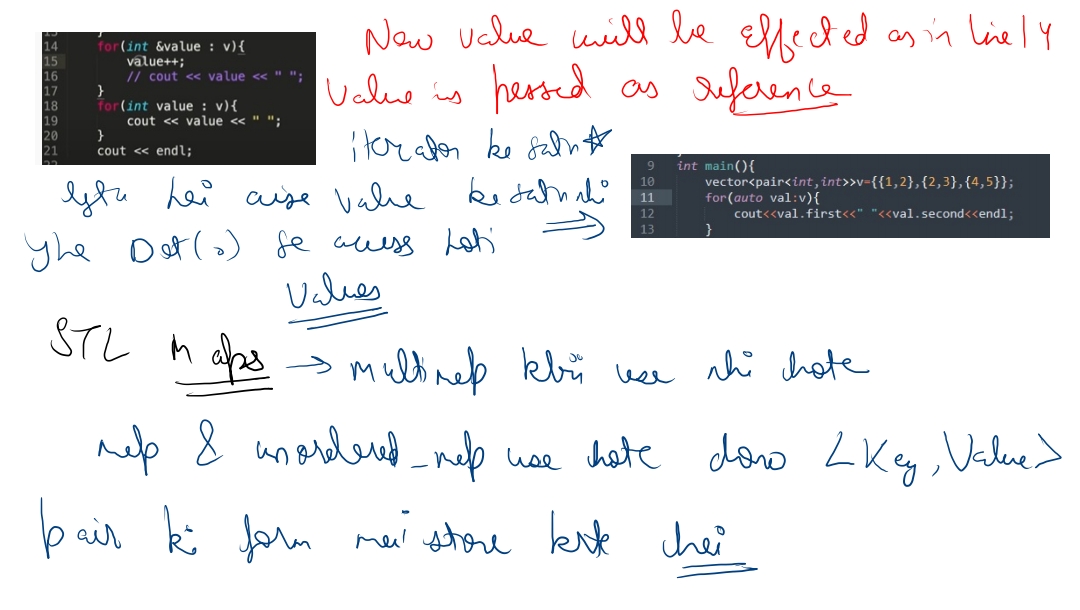 14 for(int &value : v){
15 value++;
16 // cout << value << " ";
17 }
18 for(int value : v){
19 cout << value << " ";
20 }
21 cout << endl;
Now value will be effected as in line 14
Value is passed as reference
iterator ke sath *
lgta hei aise Value ke sath nhi
yha Dot(.) se access hoti
Values
9 int main(){
10 vector<pair<int,int>>v={{1,2},{2,3},{4,5}};
11 for(auto val:v){
12 cout<<val.first<<" "<<val.second<<endl;
13 }
STL Maps → multimap kbhi use nhi hote
map & unordered_map use hote dono <Key, Value>
pair ki form mei store krte hei